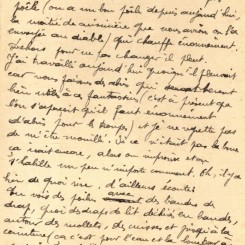 poêle (on a un bon poêle depuis aujourd'hui,
la moitié de cuisinière que nous avions on l'a
envoyée au diable) qui chauffe énormément.
Dehors pour ne pas changer il pleut.
J'ai travaillé aujourd'hui quoiqu'il pleuvait
car nous faisons des abris qui
bien utiles à ces fantassins (c'est à présent que
l'on s'aperçoit qu'il faut énormément
d'abris pour le troupe) et je ne regrette pas
de m'être mouillé. Si ce n'était pas la boue
ça irait encore, alors on improvise et on
s'habille un peu n'importe comment. Oh, il y a
bien de quoi rire, d'ailleurs écoutez
Tu vois des poilus avec des bandes de
draps, quoi des draps de lit déchirés en bandes,
autour des mollets, des cuisses et jusqu'à la
ceinture, ça c'est pour l'eau et la boue